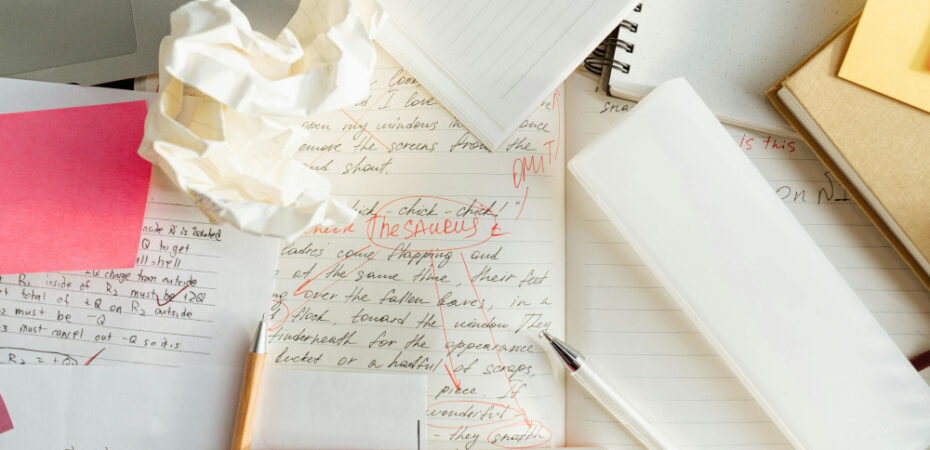 d I love
pen my windows in once
emove the screens from the
and shout.
OMIT
Is this
on N
chick - chick - chick!"
check THESAURUS
ladies come flapping and
at the same time, their feet
over the fallen leaves, in a
flock, toward the window. They
underneath for the appearance
bucket or a hadful of scraps,
piece. If
wonderful -
- they snatch
inside R₁ is isolated
Q to get
+2Q charge from outside
R₂ inside of R₂ must be +2Q
total of +2Q on R₂ outside
must be -Q
must cancel out -Q so it's
R₂ =